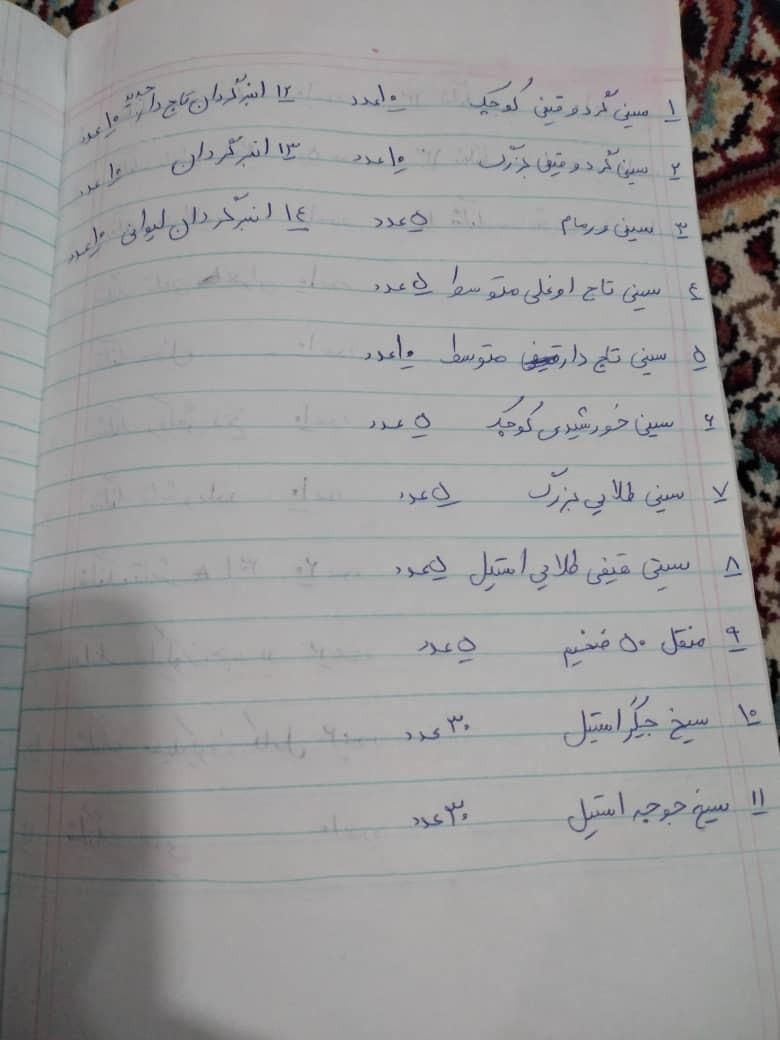 ۱ سینی گرد و قیفی کوچک ۱۰ عدد
۲ سینی گرد و قیفی بزرگ ۱۰ عدد
۳ سینی ورمام ۵ عدد
۴ سینی تاج اوغلی متوسط ۵ عدد
۵ سینی تاج دار متوسط ۱۰ عدد
۶ سینی خورشیدی کوچک ۵ عدد
۷ سینی طلایی بزرگ ۵ عدد
۸ سینی قیفی طلایی استیل ۵ عدد
۹ منقل ۵۰ ضخیم ۵ عدد
۱۰ سیخ جیگر استیل ۳۰ عدد
۱۱ سیخ جوجه استیل ۳۰ عدد
۱۲ انبرگردان تاج دار جدید ۱۰ عدد
۱۳ انبرگردان ۱۰ عدد
۱۴ انبرگردان لیوانی ۱۰ عدد